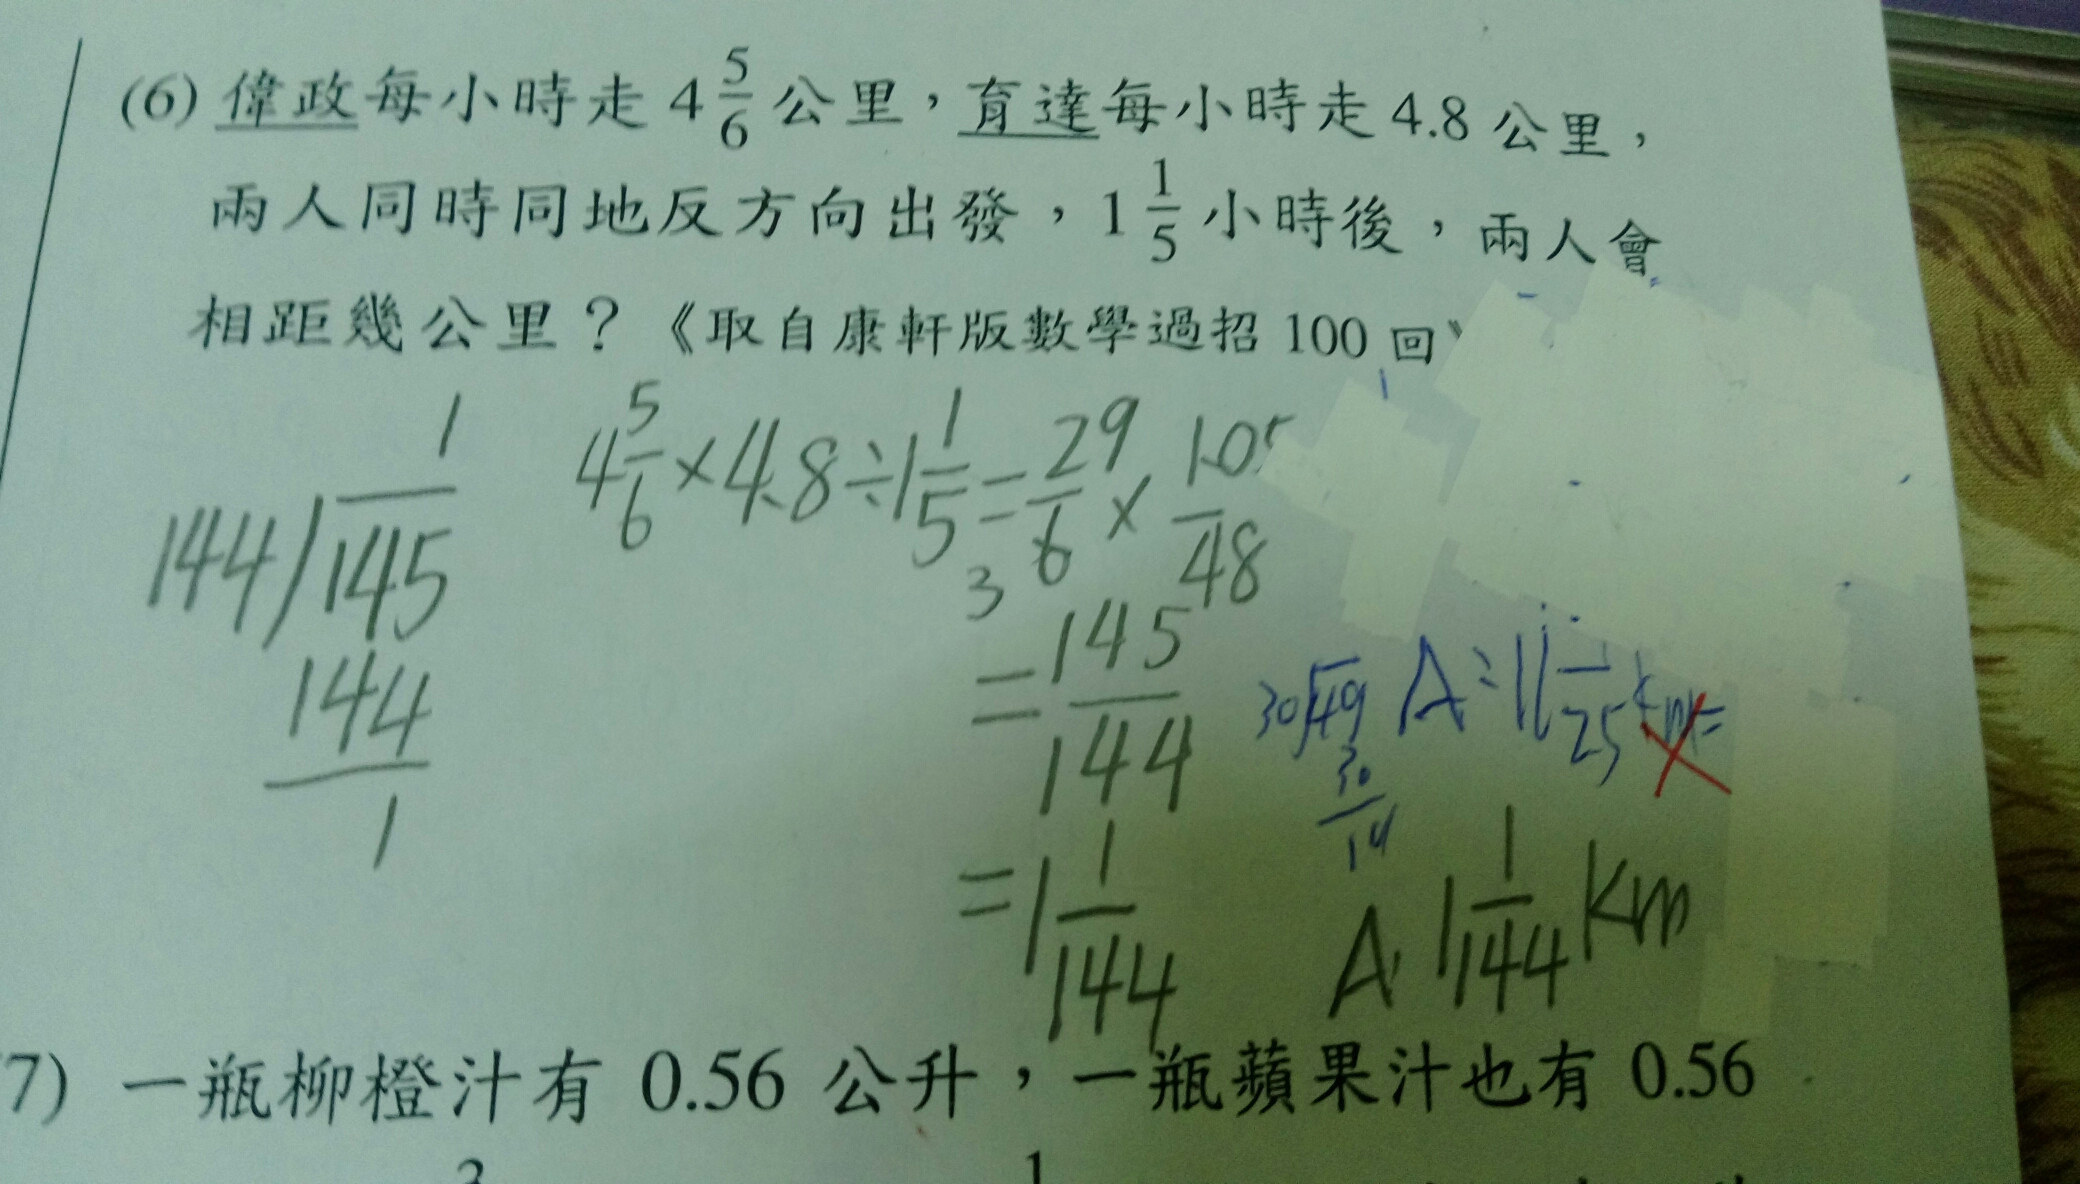 (6) 偉政每小時走 4 5/6 公里，育達每小時走 4.8 公里，
兩人同時同地反方向出發，1 1/5 小時後，兩人會
相距幾公里？《取自康軒版數學過招 100 回》
4 5/6 × 4.8 ÷ 1 1/5 = 29/6 × 105/48
3
= 145/144
= 1 1/144
1
144)145
144
1
30)49
30
A: 11 1/25 km
A 1 1/144 km
7) 一瓶柳橙汁有 0.56 公升，一瓶蘋果汁也有 0.56